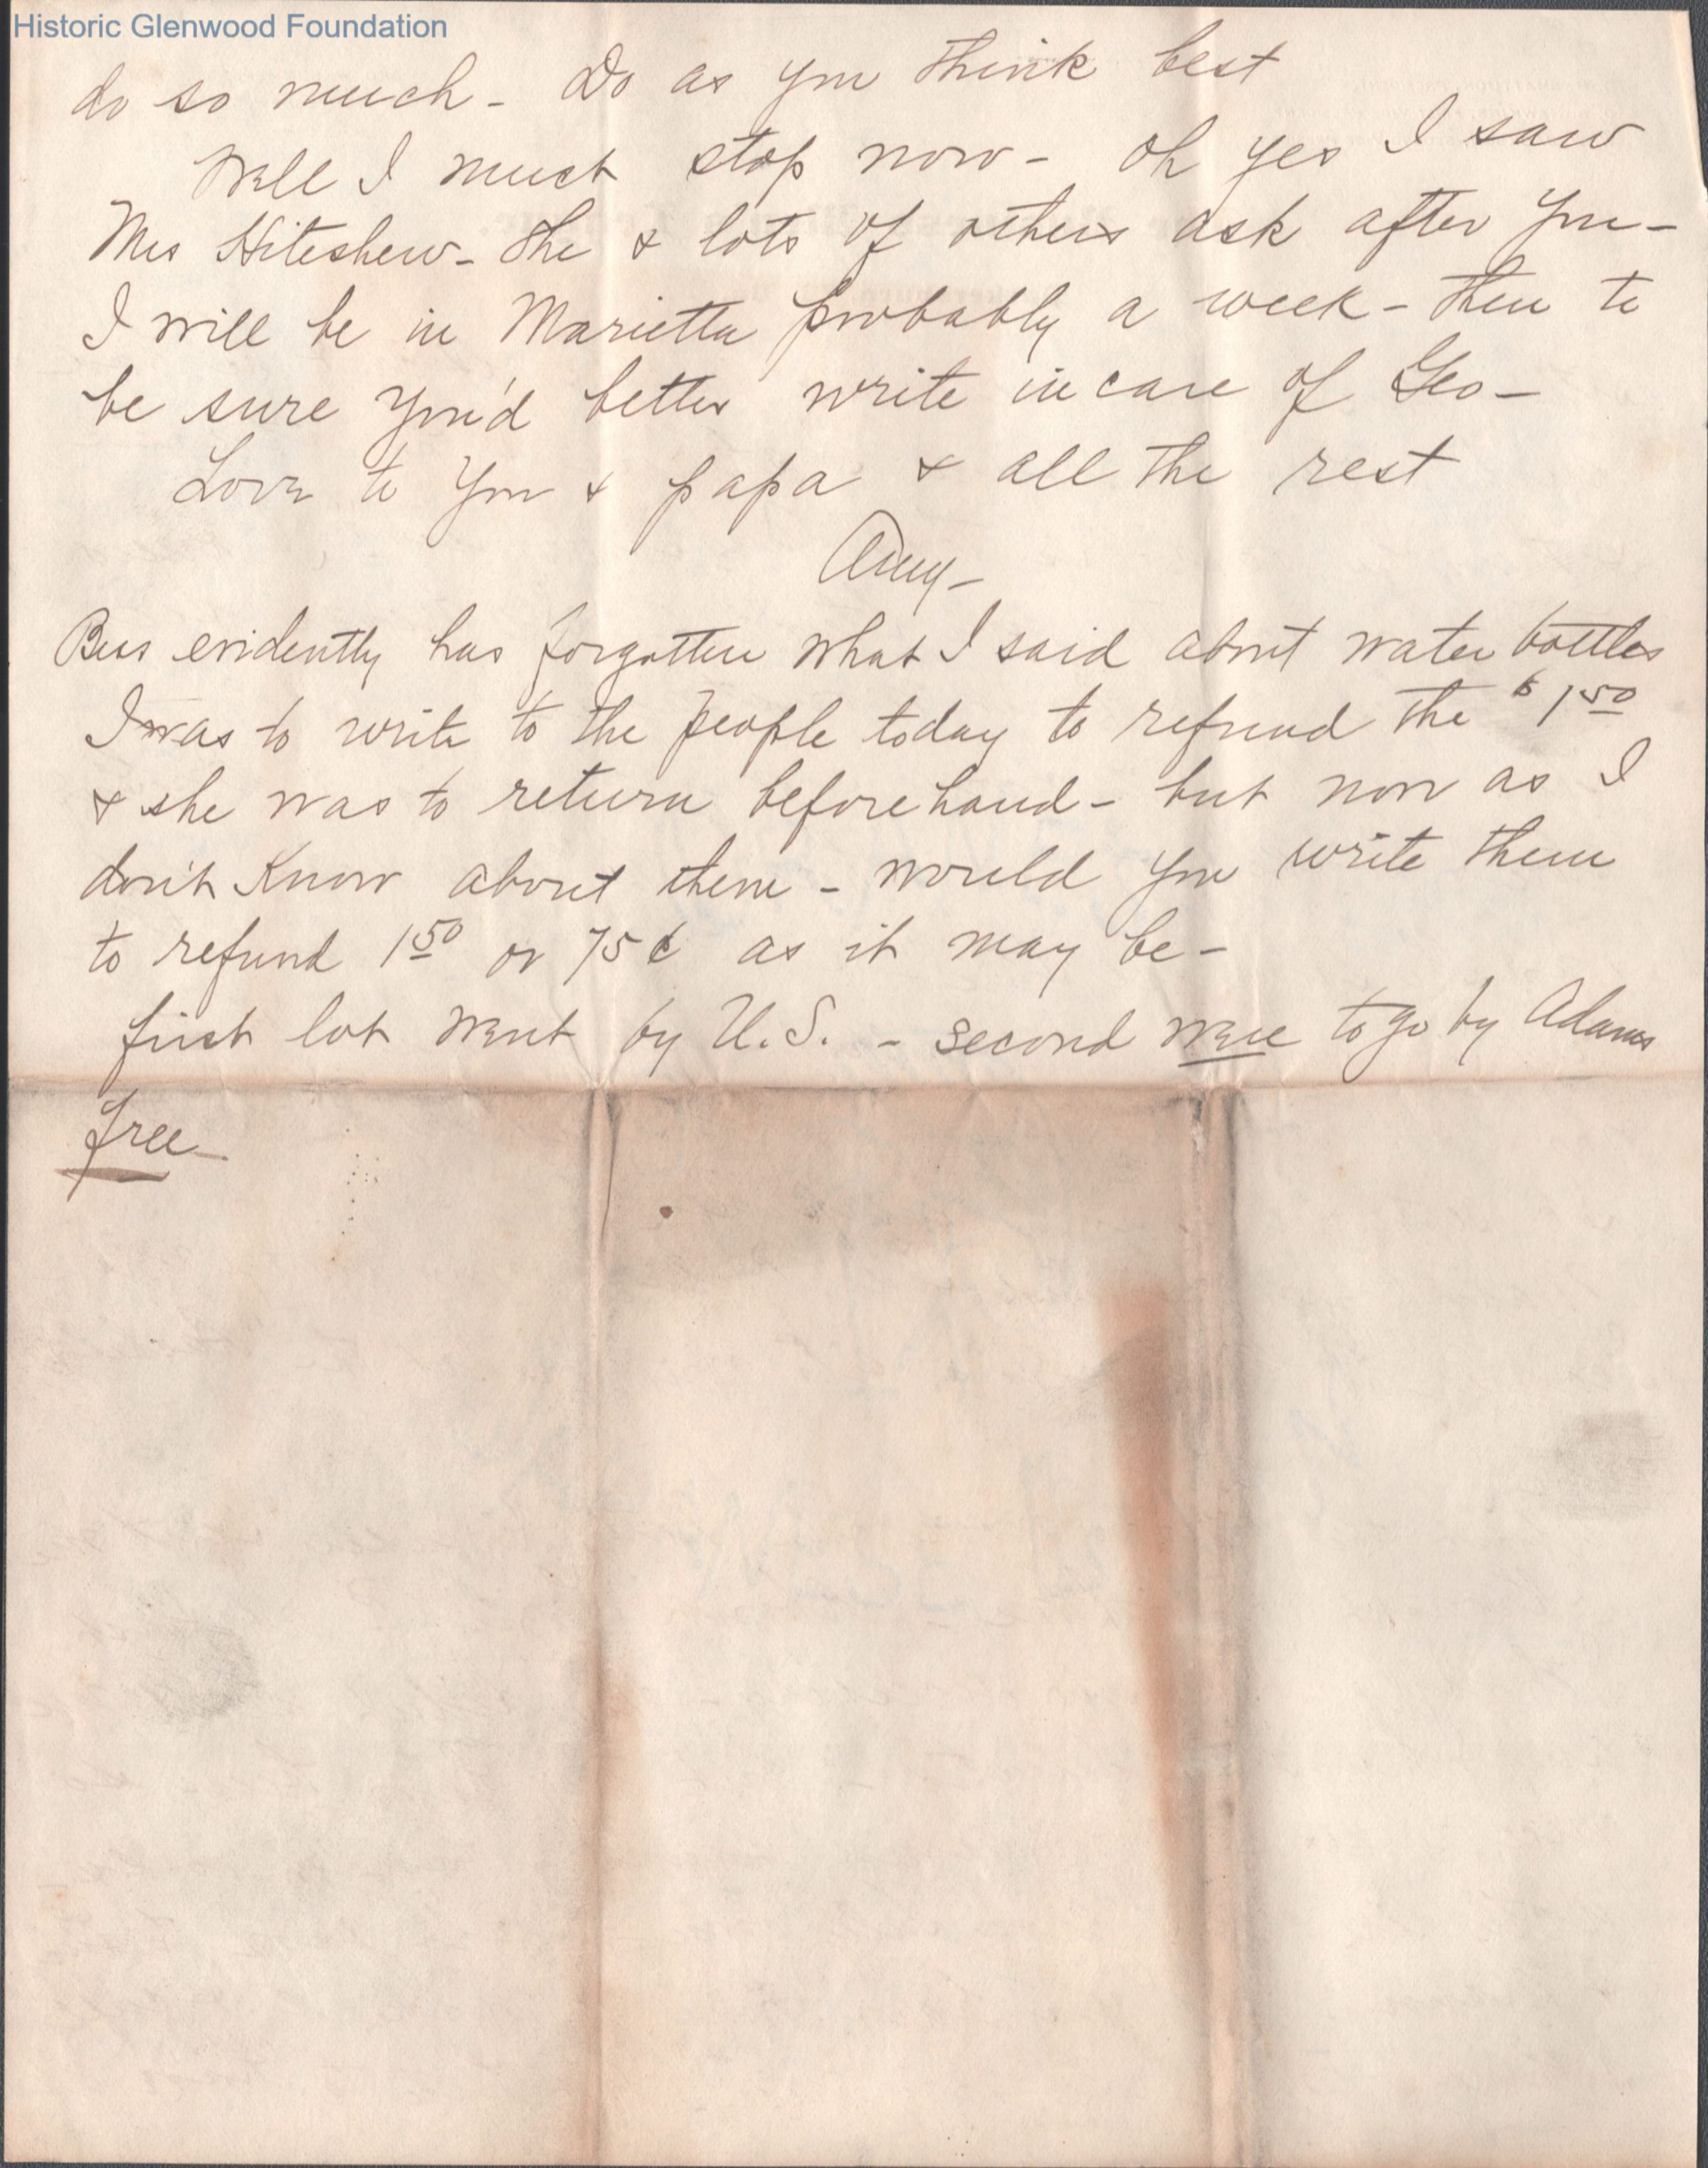 Historic Glenwood Foundation
do so much - Do as you think best
Well I must stop now - Oh yes I saw
Mrs Hiteshew - She & lots of others ask after you -
I will be in Marietta probably a week - then to
be sure you'd better write in care of Geo -
Love to you & papa & all the rest
Amy -
Bess evidently has forgotten what I said about water bottles
I was to write to the people today to refund the $1 50
& she was to return beforehand - but now as I
don't know about them - would you write them
to refund 1 50 or 75¢ as it may be -
first lot went by U.S. - second were to go by Adams
free -